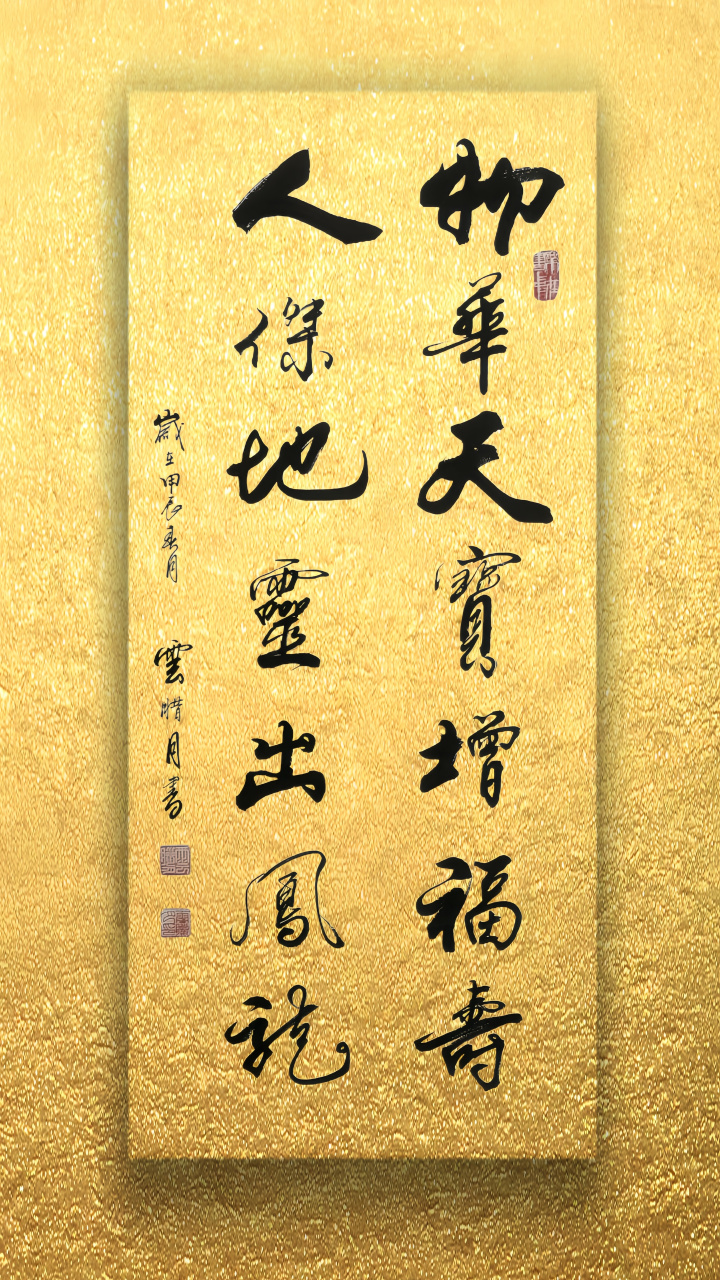 物華天寶增福壽
人傑地靈出鳳龍
歲在甲辰春月 雲腊月書